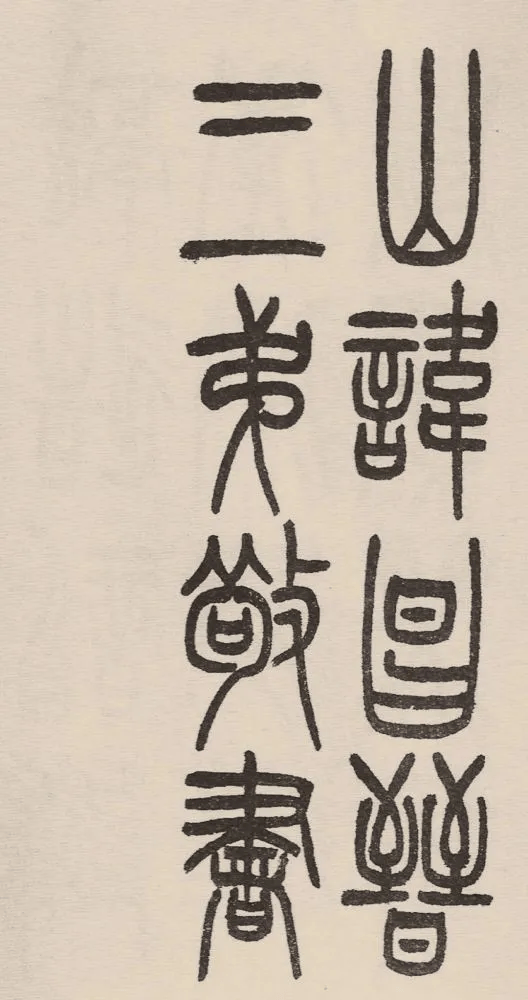 山諱昌晉
三弟敬書